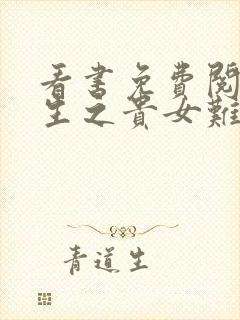 看书免费阅
生之贵女难
青道生